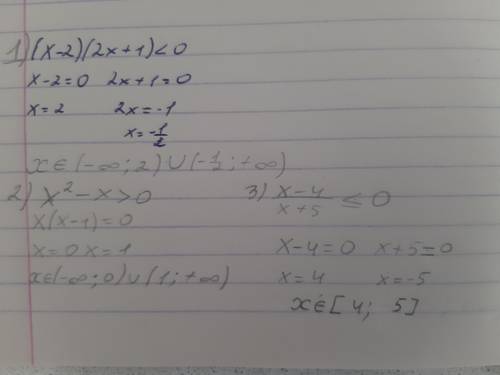 1) (x-2)(2x+1)<0
x-2=0 2x+1=0
x=2 2x=-1
x=-1/2
x∈(-∞;2)∪(-1/2;+∞)
2) x²-x>0
x(x-1)=0
x=0 x=1
x∈(-∞;0)∪(1;+∞)
3) x-4/x+5 ≤0
x-4=0 x+5=0
x=4 x=-5
x∈[4; 5]